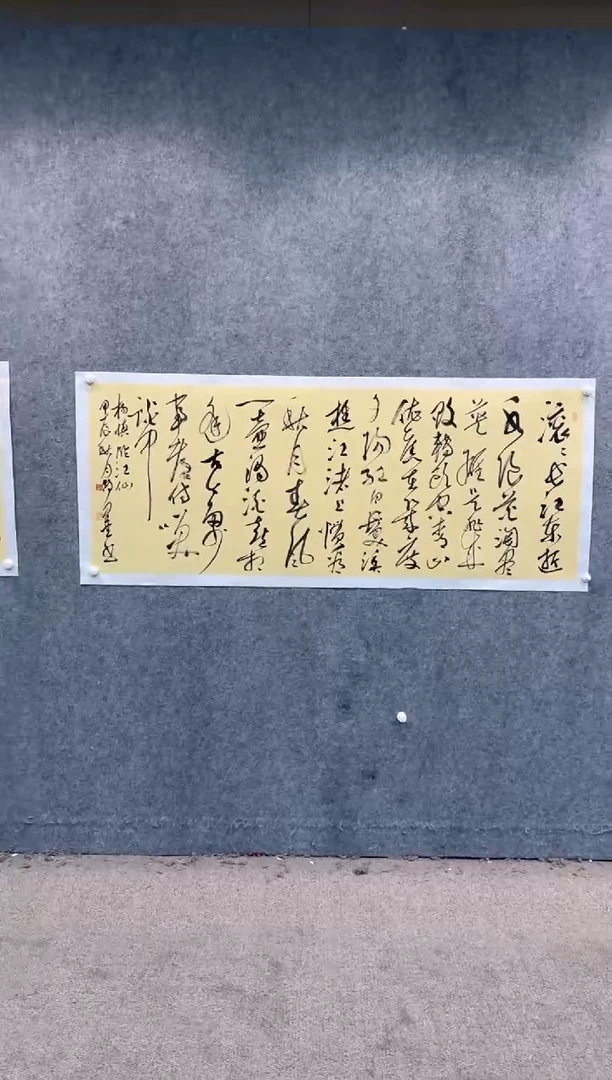 滚滚长江东逝
水浪花淘尽
英雄是非成
败转头空青山
依旧在几度
夕阳红白发渔
樵江渚上惯看
秋月春风
一壶浊酒喜相
逢古今多少
事都付笑
谈中
杨慎临江仙
甲辰秋月